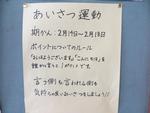 あいさつ運動
期かん：2月14日～2月18日
ポイントについてのルール
「おはようございます」「こんにちは」を
言う側も言われる側も
気持ちの良いあいさつをしましょう！！